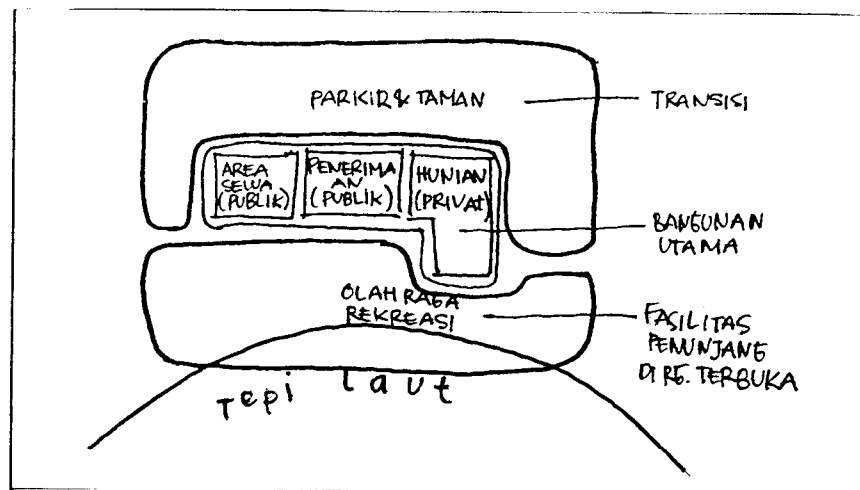 PARKIR & TAMAN
TRANSISI
AREA
SEWA
(PUBLIK)
PENERIMA
AN
(PUBLIK)
HUNIAN
(PRIVAt)
BANGUNAN
UTAMA
OLAH RAGA
REKREASI
FASILITAS
PENUNJANG
DI RG. TERBUKA
Tepi laut